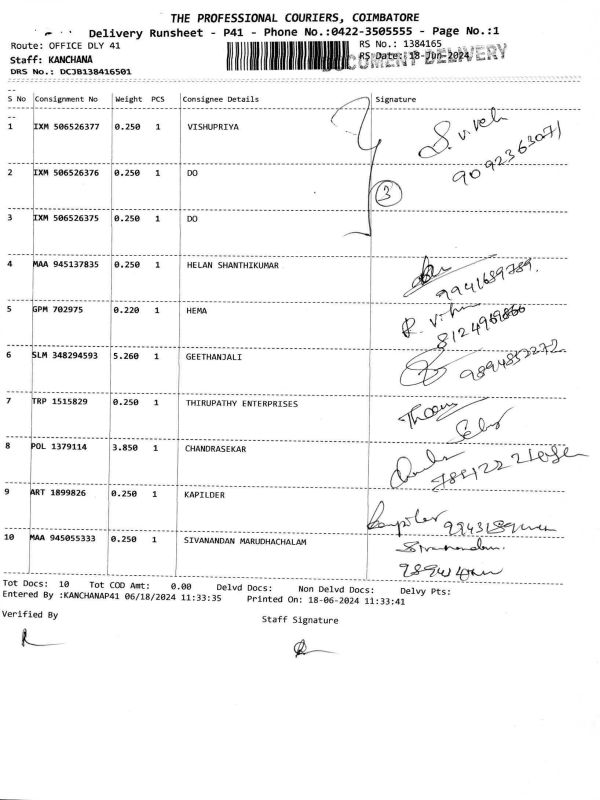 THE PROFESSIONAL COURIERS, COIMBATORE
Delivery Runsheet - P41 - Phone No.:0422-3505555 - Page No.:1
Route: OFFICE DLY 41
RS No.: 1384165
Staff: KANCHANA
RS Date: 18-Jun-2024
DOCUMENT DELIVERY
DRS No.: DCJB138416501
S No Consignment No Weight PCS Consignee Details Signature
1 IXM 506526377 0.250 1 VISHUPRIYA
9092363071
2 IXM 506526376 0.250 1 DO
3
3 IXM 506526375 0.250 1 DO
4 MAA 945137835 0.250 1 HELAN SHANTHIKUMAR
9941689789.
5 GPM 702975 0.220 1 HEMA
8124969866
6 SLM 348294593 5.260 1 GEETHANJALI
9894852272
7 TRP 1515829 0.250 1 THIRUPATHY ENTERPRISES
8 POL 1379114 3.850 1 CHANDRASEKAR
9 ART 1899826 0.250 1 KAPILDER
10 MAA 945055333 0.250 1 SIVANANDAN MARUDHACHALAM
Tot Docs: 10 Tot COD Amt: 0.00 Delvd Docs: Non Delvd Docs: Delvy Pts:
Entered By :KANCHANAP41 06/18/2024 11:33:35 Printed On: 18-06-2024 11:33:41
Verified By
Staff Signature